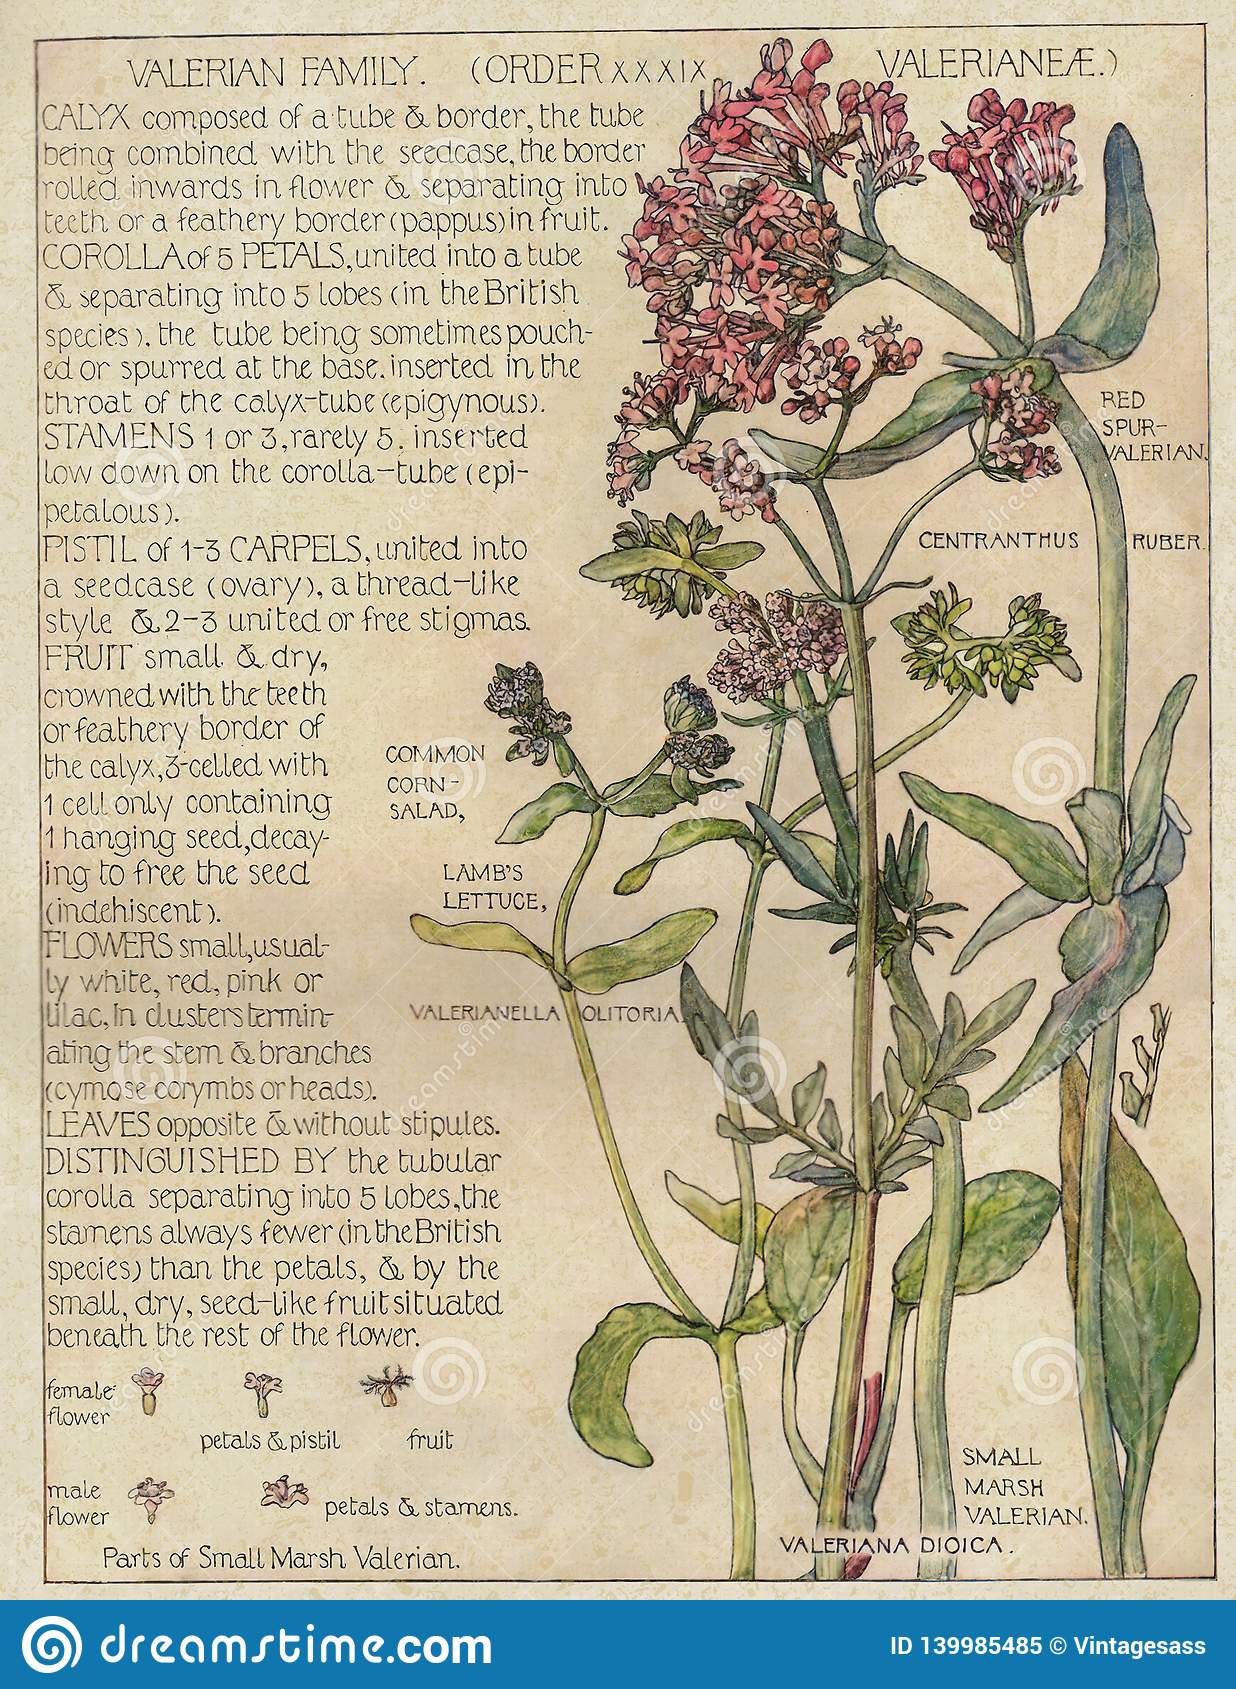 VALERIAN FAMILY. (ORDER XXXIX VALERIANEÆ.)
CALYX composed of a tube & border, the tube
being combined with the seedcase, the border
rolled inwards in flower & separating into
teeth or a feathery border (pappus) in fruit.
COROLLA of 5 PETALS, united into a tube
& separating into 5 lobes (in the British
species), the tube being sometimes pouch-
ed or spurred at the base. inserted in the
throat of the calyx-tube (epigynous).
STAMENS 1 or 3, rarely 5. inserted
low down on the corolla-tube (epi-
petalous).
PISTIL of 1-3 CARPELS, united into
a seedcase (ovary), a thread-like
style & 2-3 united or free stigmas.
FRUIT small & dry,
crowned with the teeth
or feathery border of
the calyx, 3-celled with
1 cell only containing
1 hanging seed, decay-
ing to free the seed
(indehiscent).
FLOWERS small, usual-
ly white, red, pink or
lilac, in clusters termin-
ating the stem & branches
(cymose corymbs or heads).
LEAVES opposite & without stipules.
DISTINGUISHED BY the tubular
corolla separating into 5 lobes, the
stamens always fewer (in the British
species) than the petals, & by the
small, dry, seed-like fruit situated
beneath the rest of the flower.
female
flower
petals & pistil
fruit
male
flower
petals & stamens.
Parts of Small Marsh Valerian.
RED
SPUR-
VALERIAN.
CENTRANTHUS RUBER.
COMMON
CORN-
SALAD,
LAMB'S
LETTUCE,
VALERIANELLA OLITORIA.
SMALL
MARSH
VALERIAN.
VALERIANA DIOICA.
dreamstime.com
ID 139985485 © Vintagesass